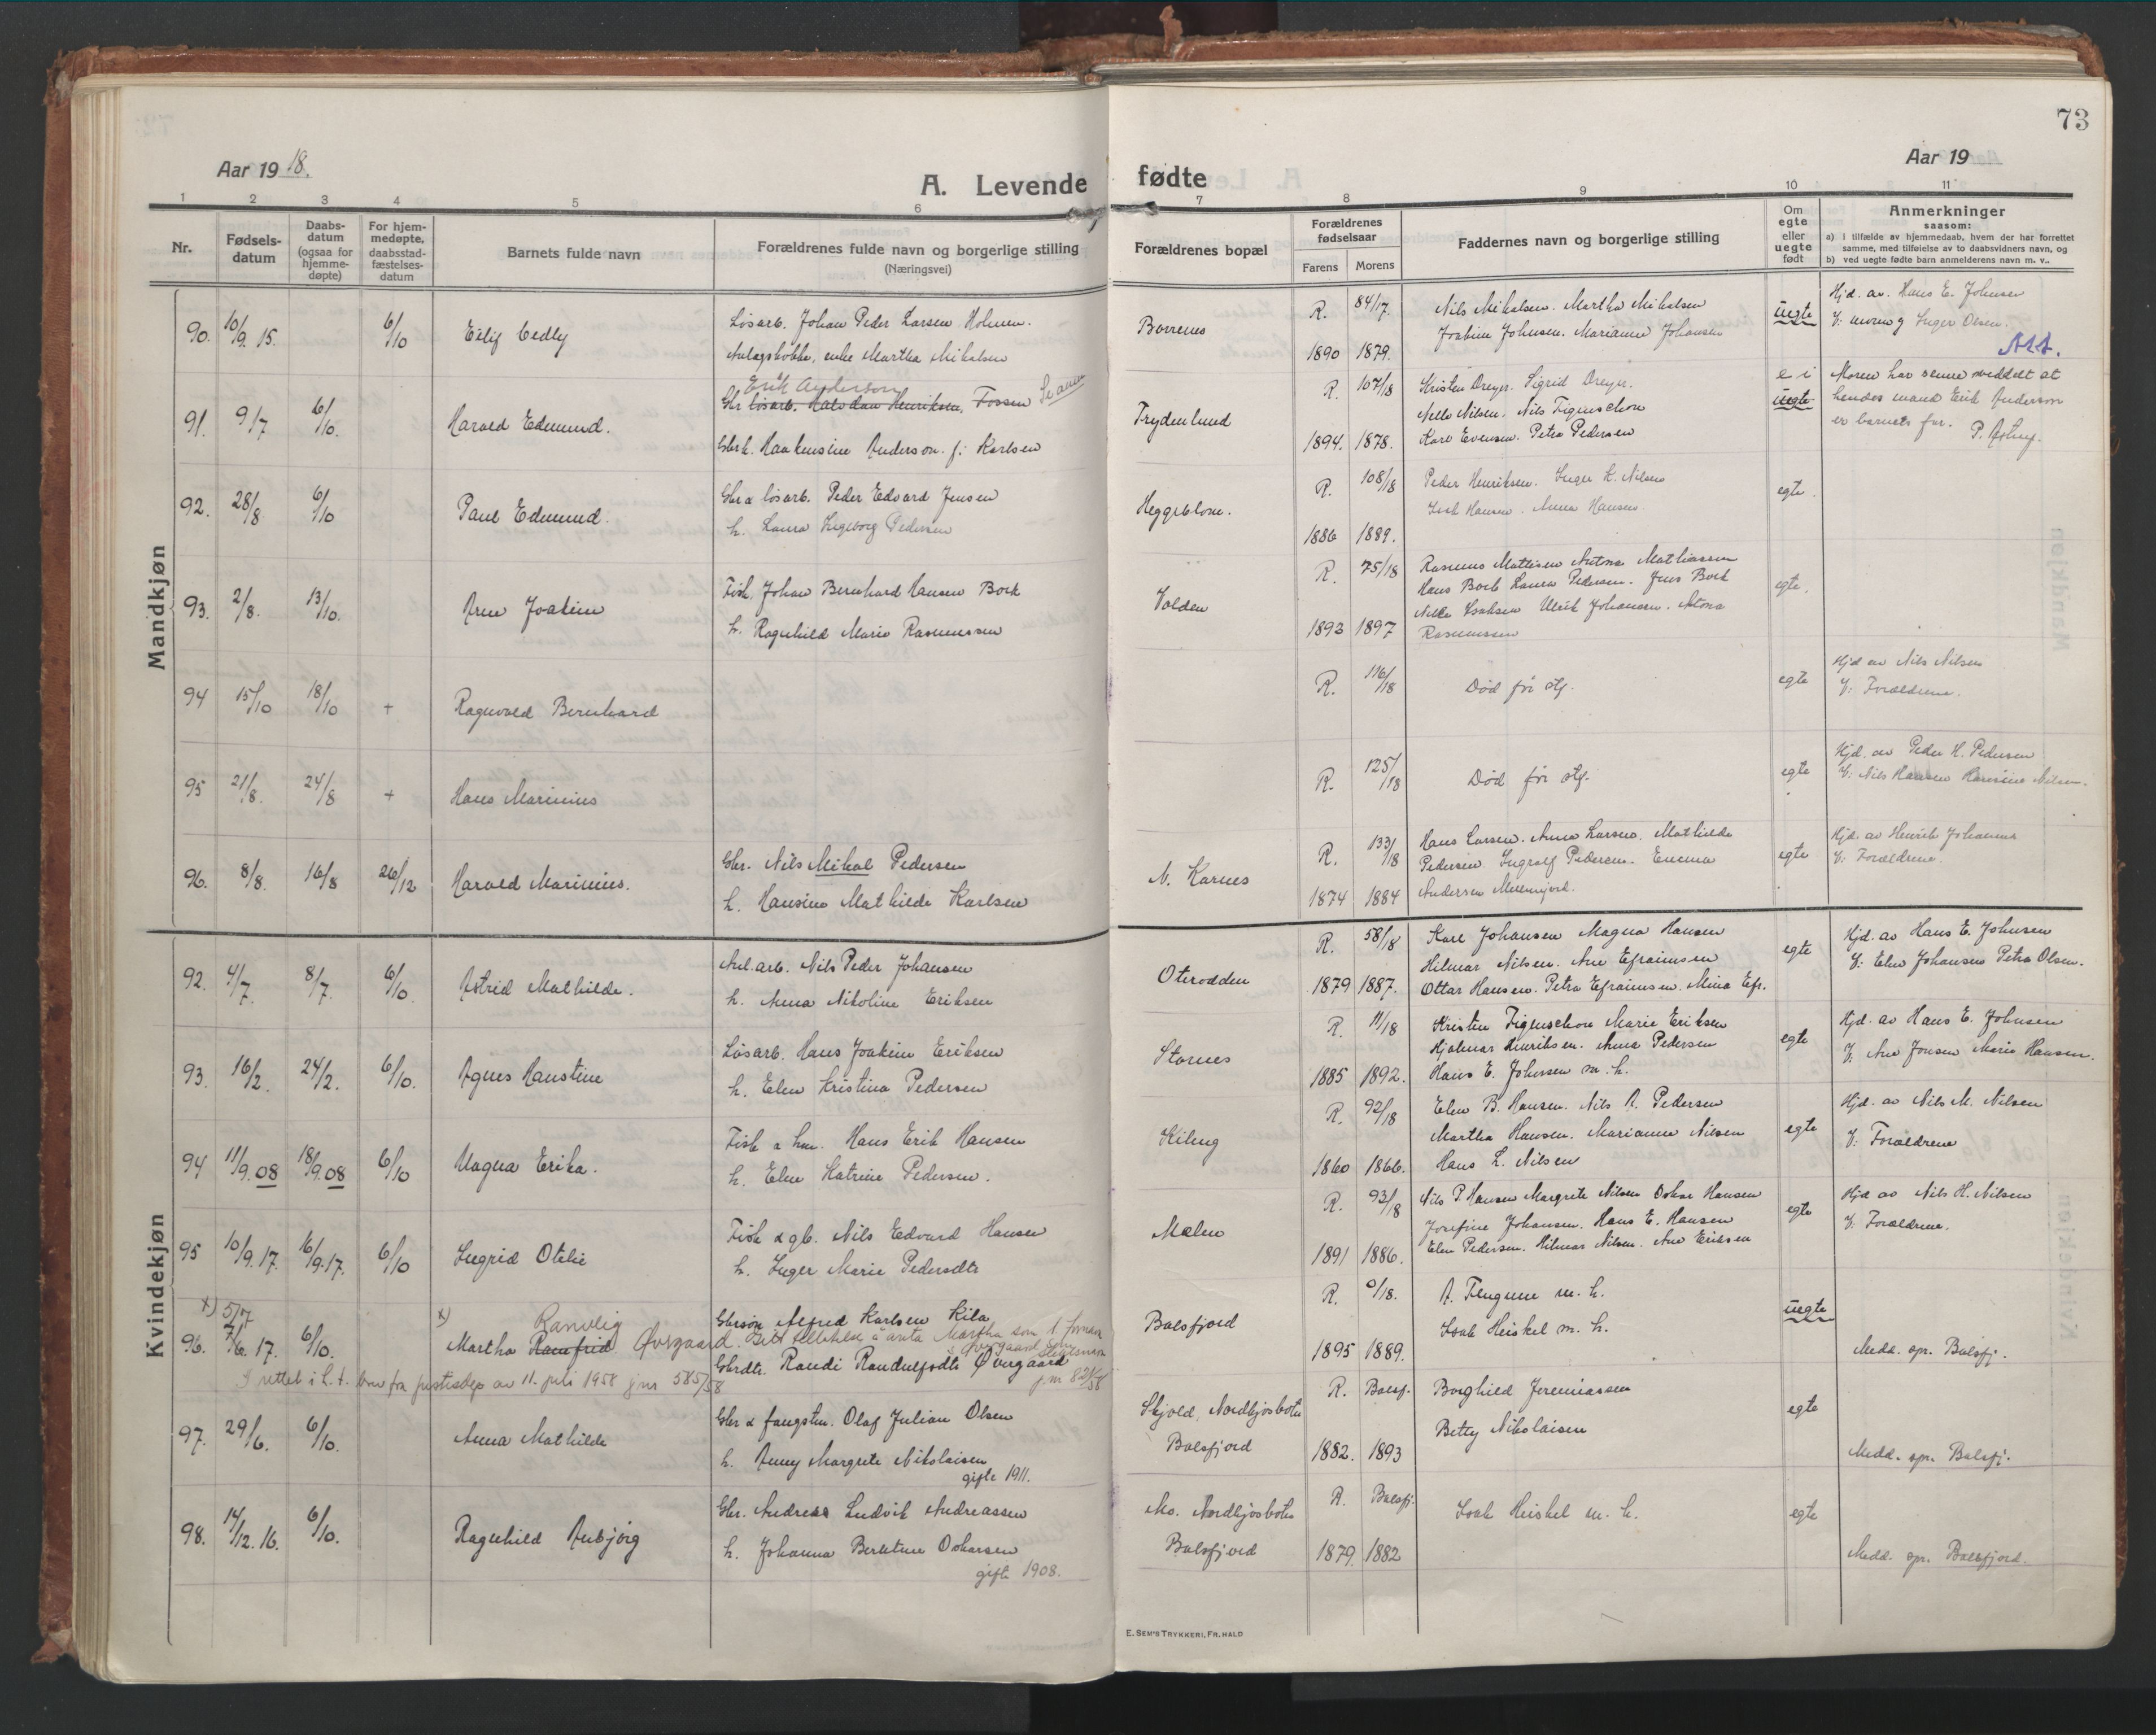 73
Aar 19 18.
Aar 19
A. Levende fødte
1 2 3 4 5 6 7 8 9 10 11
Nr.
Fødsels-datum
Daabs-datum (ogsaa for hjemme-døpte)
For hjem-medøpte, daabsstad-fæstelses-datum
Barnets fulde navn
Forældrenes fulde navn og borgerlige stilling
(Næringsvei)
Forældrenes bopæl
Forældrenes fødselsaar
Farens Morens
Faddernes navn og borgerlige stilling
Om egte eller uegte født
Anmerkninger
saasom:
a) i tilfælde av hjemmedaab, hvem der har forrettet samme, med tilføielse av to daabsvidners navn, og
b) ved uegte fødte barn anmelderens navn m. v..
Mandkjøn
90. 10/9. 15. 6/10 Eilif Cedly
Løsarb. Johan Peder Larsen Holmen.
enke Martha Mikalsen
R. 84/17.
1890 1879.
Nils Mikalsen. Martha Mikalsen
Joakim Johnsen. Marianne Johansen
uegte
Hjd. av. Hans E. Johnsen
Inger Olsen.
91. 9/7 6/10. Harald Edmund.
Erik Anderson
Gbr. løsarb. Halvdan Henriksen, Fossen
Haakensine Anderson. f. Karlsen
Frydenlund
R. 107/18
1894. 1878.
Kristen Dreyer. Sigrid Dreyer.
Nella Nilsen. Nils Figenschou
Karl Evensen. Petra Pedersen
uegte
Moren har senere meddelt at
hendes mand Erik Anderson
er barnets far.
92. 28/8 6/10 Paul Edmund.
Gbr & løsarb. Peder Edvard Jensen
h. Laura Ingeborg Pedersen
Heggeblom.
R. 108/18
1886 1889.
Peder Henriksen. Inger L. Nilsen
Isak Hansen. Anna Hansen.
egte.
93. 2/8. 13/10. Arne Joakim
Fisk. Johan Bernhard Hansen Bock
h. Ragnhild Marie Rasmussen
Volden
R. 75/18
1893 1897
Rasmus Mathisen Antona Mathiassen
Hans Bock Laura Pedersen. Jens Bock
Nella Isaksen Ulrik Johansen. Antona
Rasmussen
egte.
94 15/10 18/10 + Ragnvald Bernhard
R. 116/18
Død før stf.
egte
Hjd av Nils Nilsen
V: Forældrene.
95 21/8. 24/8 + Hans Marinius
R. 125/18
Død før stf.
egte
Hjd. av Peder H. Pedersen
V: Nils Hansen Nilsen.
96. 8/8. 16/8 26/12 Harald Marinius.
Gbr. Nils Mikal Pedersen
h. Hansine Mathilde Karlsen
N. Karnes
R. 133/18
1874 1884
Hans Larsen. Anna Larsen. Mathilde
Pedersen Ingralf Pedersen. Emma
Andersen
egte
Hjd. av Henrik Johansen
V: Forældrene.
Kvindekjøn
92. 4/7. 8/7. 6/10. Astrid Mathilde.
Anl. arb. Nils Peder Johansen
h. Anna Nikoline Eriksen
Oterodden
R. 58/18
1879 1887.
Karl Johansen Magna Hansen
Hilmar Nilsen. Ane Efraimsen
Ottar Hansen. Petra Efraimsen. Mina Efr.
egte
Hjd. av Hans E. Johnsen
V: Elen Johansen Petra Olsen.
93. 16/2. 24/2. 6/10. Agnes Haustine
Løsarb. Hans Joakim Eriksen
h. Elen Kristina Pedersen
Stornes
R. 11/18
1885 1892.
Kristin Figenschou Marie Eriksen
Hjalmar Henriksen. Anna Pedersen
Hans E. Johnsen m. h.
egte
Hjd. av Hans E. Johnsen
V: Ane Jonsen Marie Hansen.
94 11/9.08 18/9.08 6/10 Magna Erika.
Hans Erik Hansen
h. Elen Katrine Pedersen.
Kileng
R. 92/18
1860 1866.
Elen B. Hansen. Nils A. Pedersen
Martha Hansen. Marianne Nilsen
Hans L. Nilsen
egte
Hjd. av Nils M. Nilsen
V: Forældrene
95 10/9.17. 16/9.17. 6/10 Ingrid Otelie
Fisk & gb. Nils Edvard Hansen
h. Inger Marie Pedersdtr
Malen
R. 93/18
1891 1886.
Nils P. Hansen Margrete Nilsen Oskar Hansen
Josefine Johansen. Hans E. Hansen
Elen Pedersen. Hilmar Nilsen. Ane Eriksen
egte
Hjd av Nils H. Nilsen
V: Forældrene.
x) 5/7
96. 7/6. 17. 6/10. x) Martha Ramfrid Ranveig Øvergaard.
Gbrsøn Alfred Karlsen Kila
Gbrdtr. Randi Randulfsdtr Øvergaard
rettet i h. t. brev fra justisdep av 11. juli 1958 jnr 585/58
Balsfjord
R. 0/18.
1895 1889.
m. h.
Isak Heiskel m. h.
uegte
Medd. spr. Balsfj.
97. 29/6. 6/10. Anna Mathilde
Gbr & fangstm. Olaf Julian Olsen
h. Jenny Margrete Nikolaisen
gifte 1911.
Skjold, Nordkjosbotn
Balsfjord
R. Balsf.
1882. 1893
Borghild Jeremiassen
Betty Nikolaisen
egte
Medd. spr. Balsfj.
98. 14/12. 16. 6/10. Ragnhild Anbjørg
Gbr. Andreas Ludvik Andreassen
h. Johanna Berntine Oskarsen
gift 1908.
Mo. Nordkjosbotn
Balsfjord
R. Balsfj.
1879. 1882
Isak Heiskel m. h.
egte
Medd. spr. Balsfjord.
E. SEM'S TRYKKERI, FR. HALD